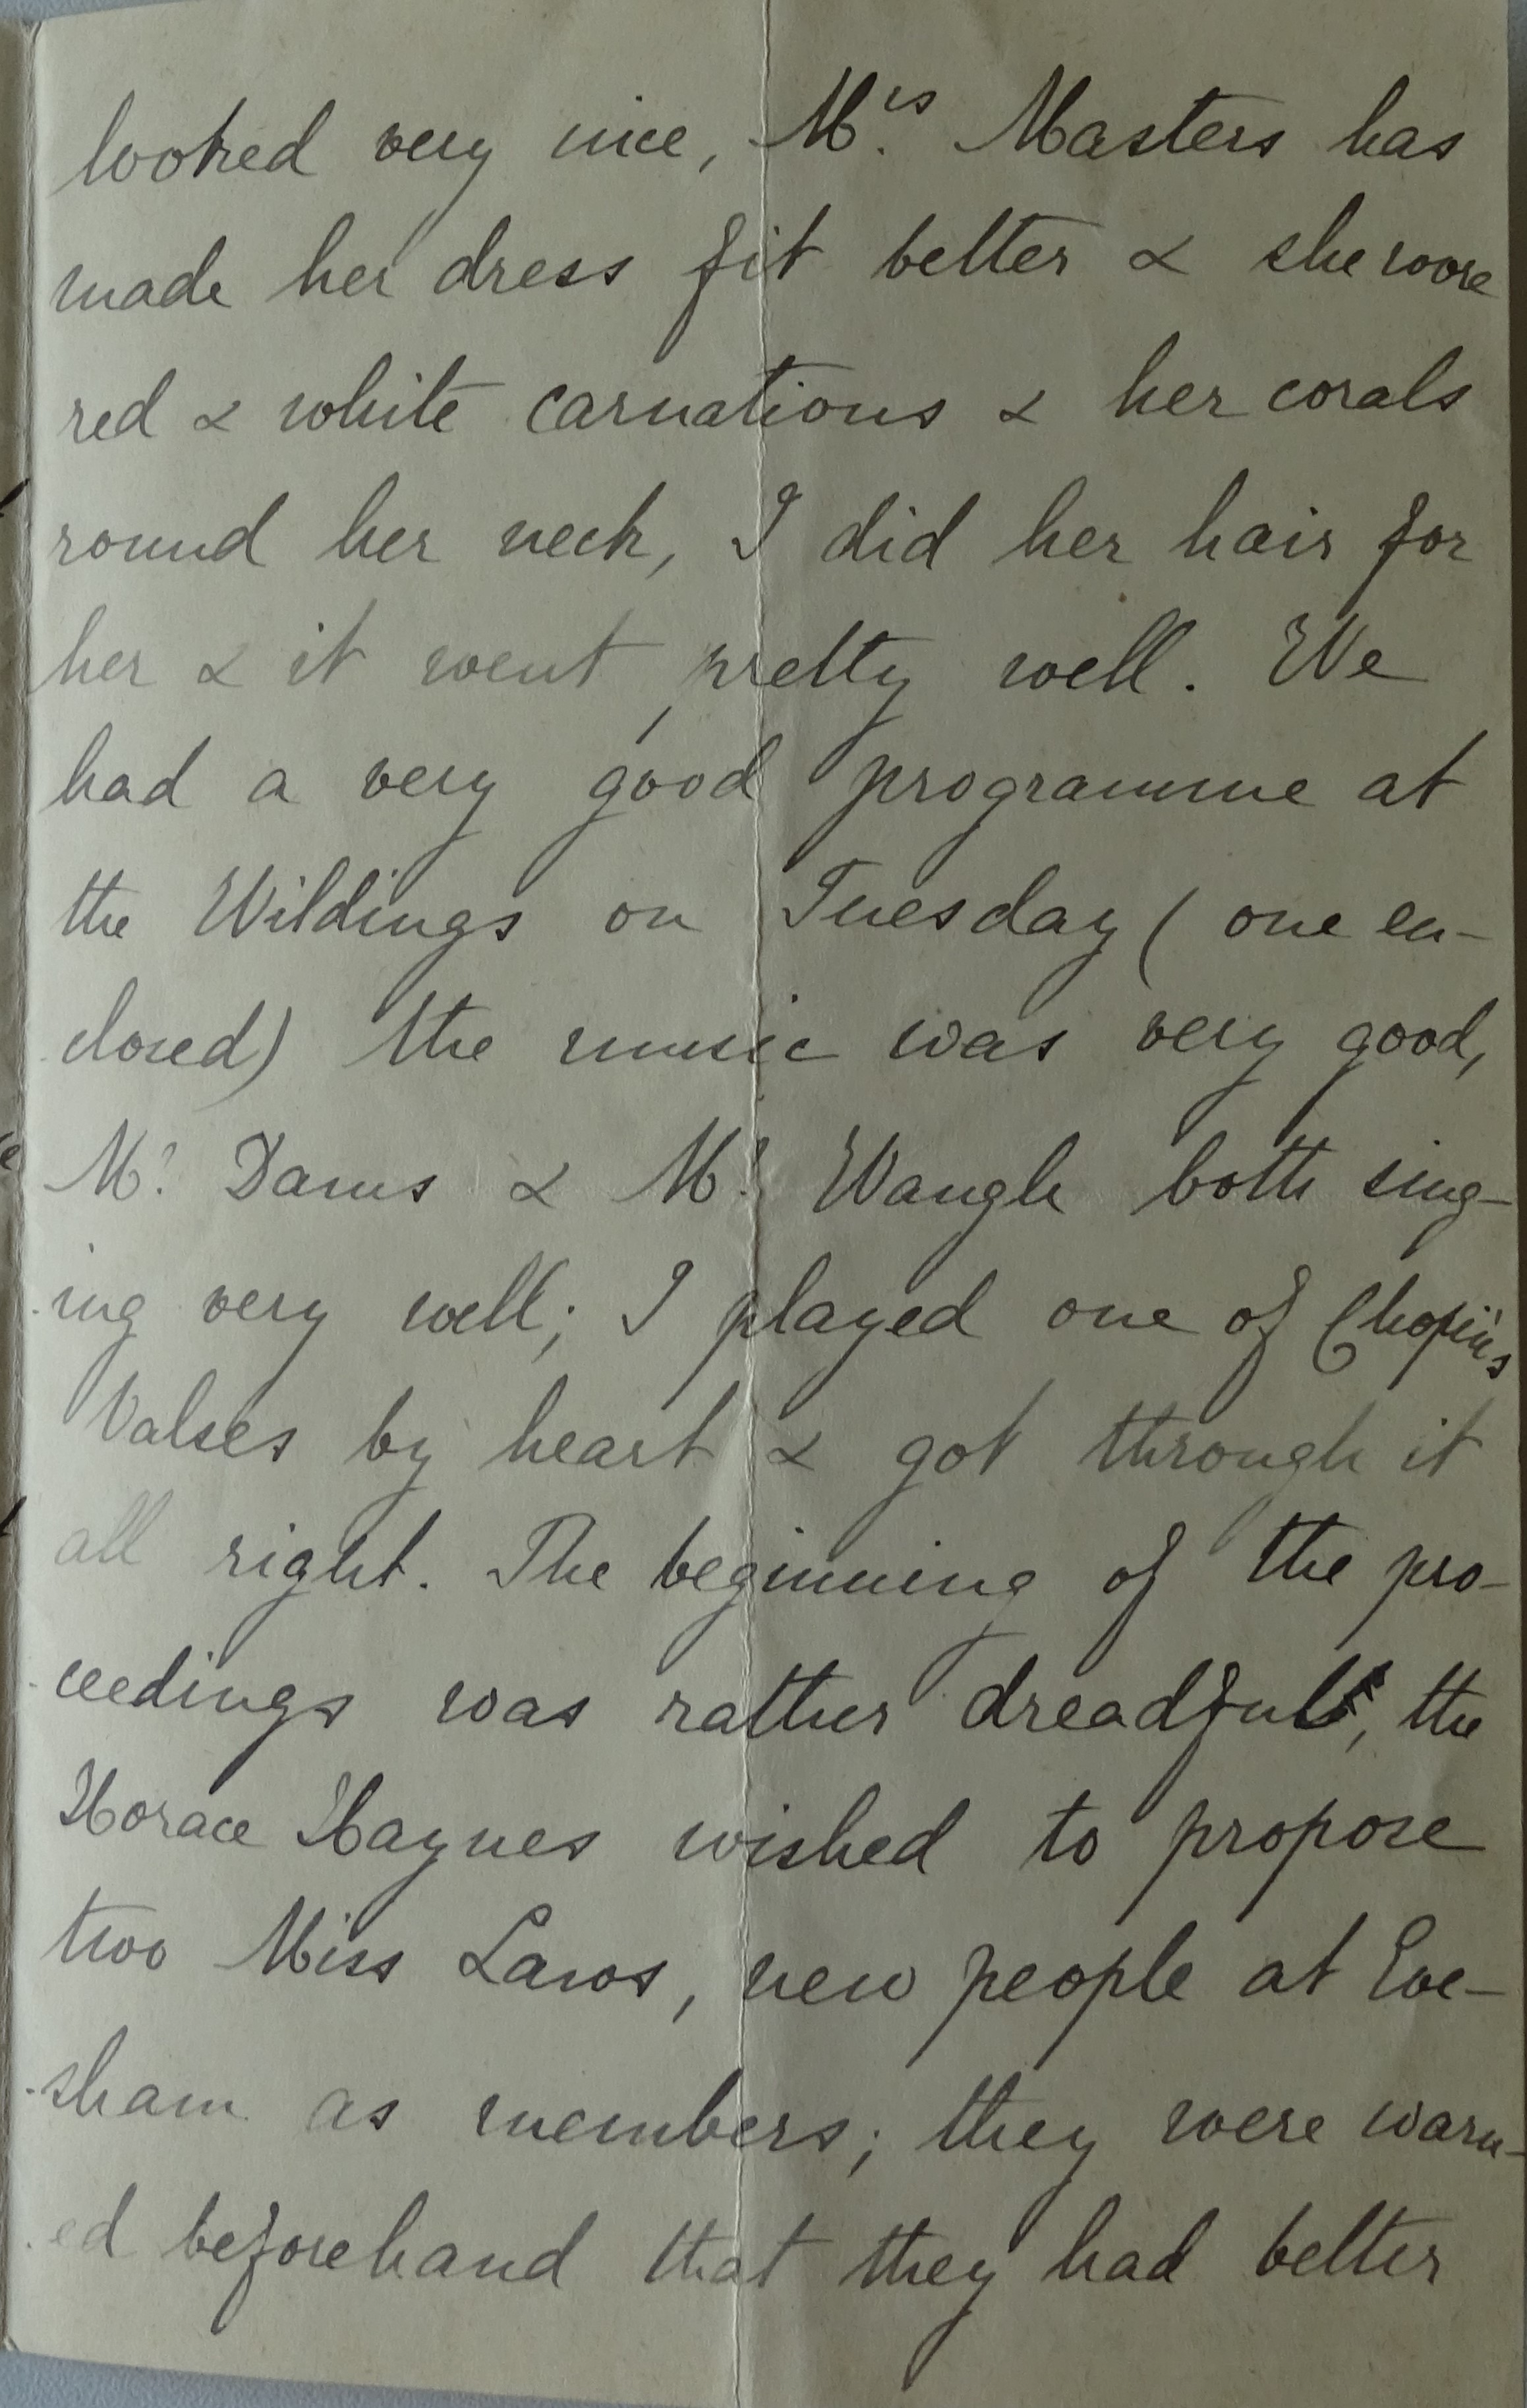 looked very nice, Mrs Masters has
made her dress fit better & she wore
red & white carnations & her corals
round her neck, I did her hair for
her & it went pretty well. We
had a very good programme at
the Wildings on Tuesday ( one en-
closed) the music was very good,
Mr. & Mr. both sing-
-ing very well; I played one of Chopin's
Valses by heart & got through it
all right. The beginning of the pro-
-ceedings was rather dreadful, the
Horace Haynes wished to propose
two Miss Laws, new people at Eve-
-sham as members; they were warn-
-ed beforehand that they had better